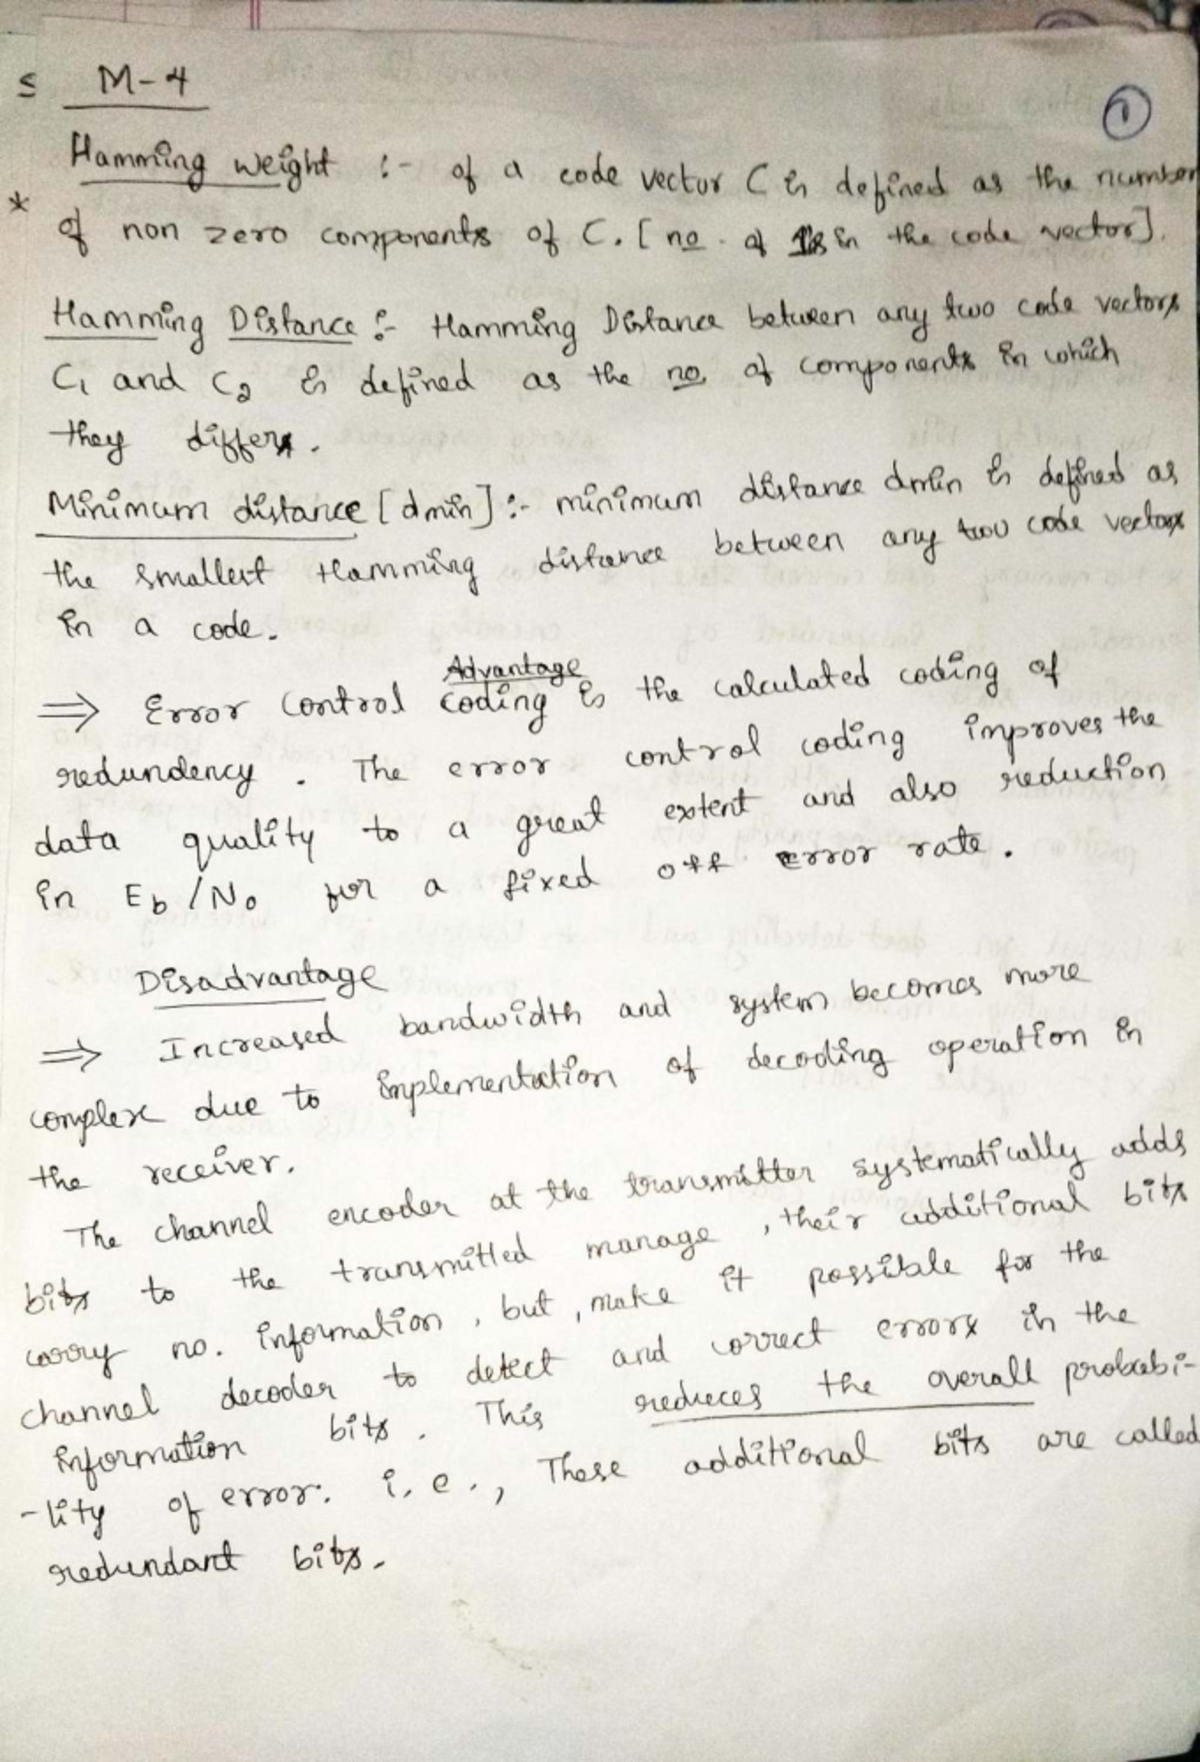 S M-4
1
Hamming weight :- of a code vector C is defined as the number
* of non zero components of C. [no. of 1s in the code vector].
Hamming Distance :- Hamming Distance between any two code vectors
C1 and C2 is defined as the no. of components in which
they differs.
Minimum distance [dmin] :- minimum distance dmin is defined as
the smallest Hamming distance between any two code vectors
in a code.
Advantage
⇒ Error control coding is the calculated coding of
redundency . The error control coding improves the
data quality to a great extent and also reduction
in Eb/No for a fixed off error rate.
Disadvantage
⇒ Increased bandwidth and system becomes more
complex due to implementation of decoding operation in
the receiver.
The channel encoder at the transmitter systematically adds
bits to the transmitted manage , their additional bits
carry no. information , but , make it possible for the
channel decoder to detect and correct errors in the
information bits . This reduces the overall probabi-
-lity of error. i.e., These additional bits are called
redundant bits.